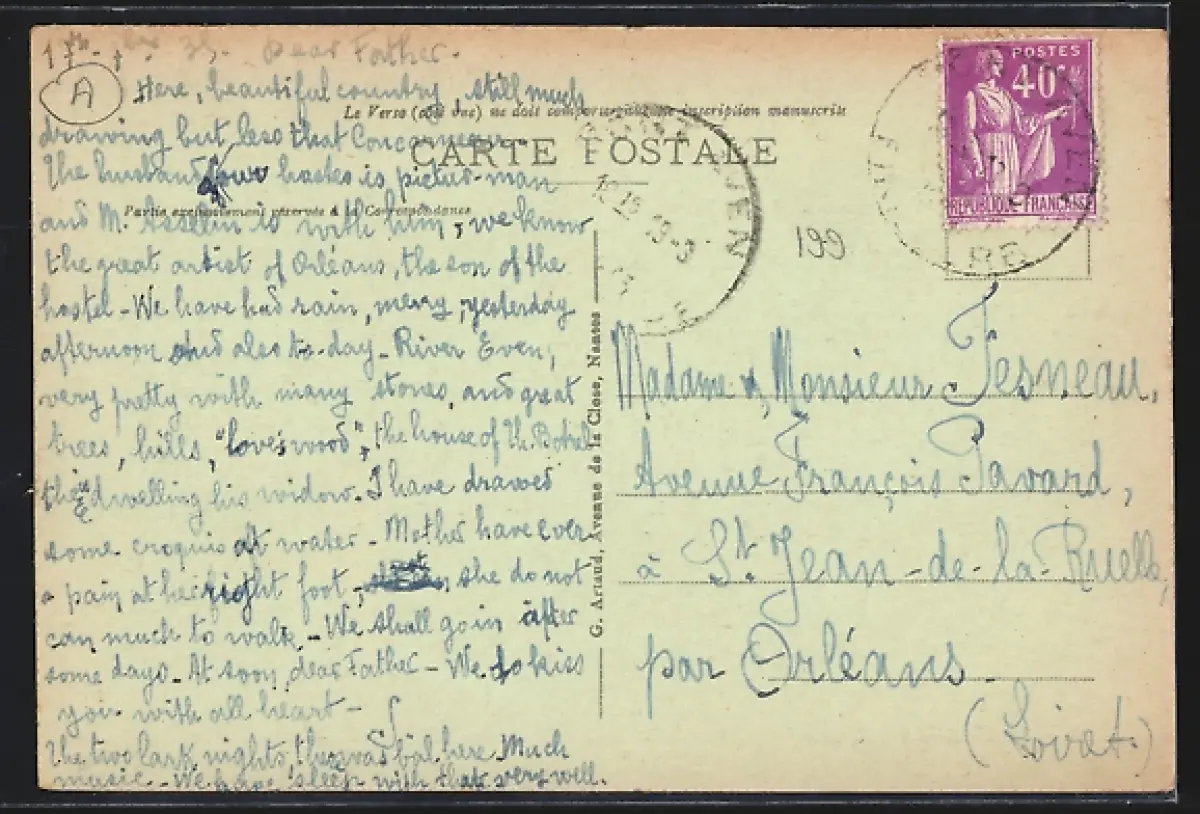 17th. 35. Dear Father.
A
Here, beautiful country, still much
drawing but less that Concarneau.
The husband of our hostes is pictur-man
and M. Asselin is with him, we know
the great artist of Orléans, the son of the
hostel - We have had rain, meny, yesterday
afternoon and also to-day - River Even,
very pretty with many stones, and great
trees, hills, "love's wood", the house of Th. Botrel
the dwelling his widow. I have drawed
some croquis at water - Mother have ever
a pain at her right foot, she do not
can much to walk - We shall go in after
some days. At soon, dear Father - We do kiss
you with all heart -
The two lark nights, there was bal here. Much
music - We have sleep with that very well.
Le Verso (côté vue) ne doit comporter aucune inscription manuscrite
CARTE POSTALE
Partie exclusivement réservée à la Correspondance
G. Artaud, Avenue de la Close, Nantes
POSTES
40c
RÉPUBLIQUE FRANÇAISE
AVEN
199
Madame & Monsieur Fesneau,
Avenue François Pavard,
à St. Jean-de-la-Ruelle,
par Orléans.
(Loiret.)